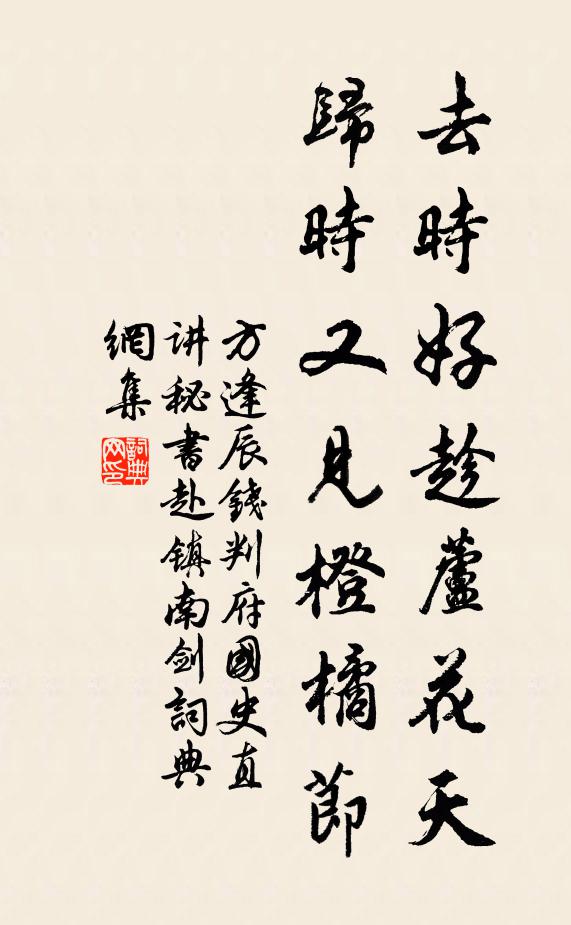 去時好趁蘆花天
歸時又見橙橘節
方逢辰錢判府國史直
讲秘書赴镇南剑詞典
網集
詞典
网印